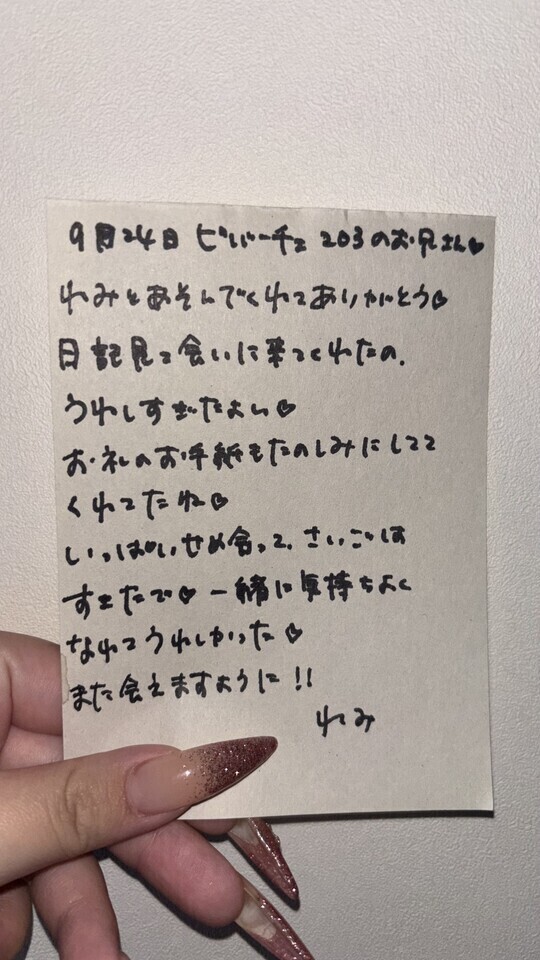 9月24日 ビバーチェ 203のお兄さん♡
れみとあそんでくれてありがとう♡
日記見て会いに来てくれたの、
うれしすぎたよん♡
お礼のお手紙もたのしみにしてて
くれてたね♡
いっぱいせめ合って、さいごは
すきたで♡ 一緒に気持ちよく
なれてうれしかった♡
また会えますように!!
れみ